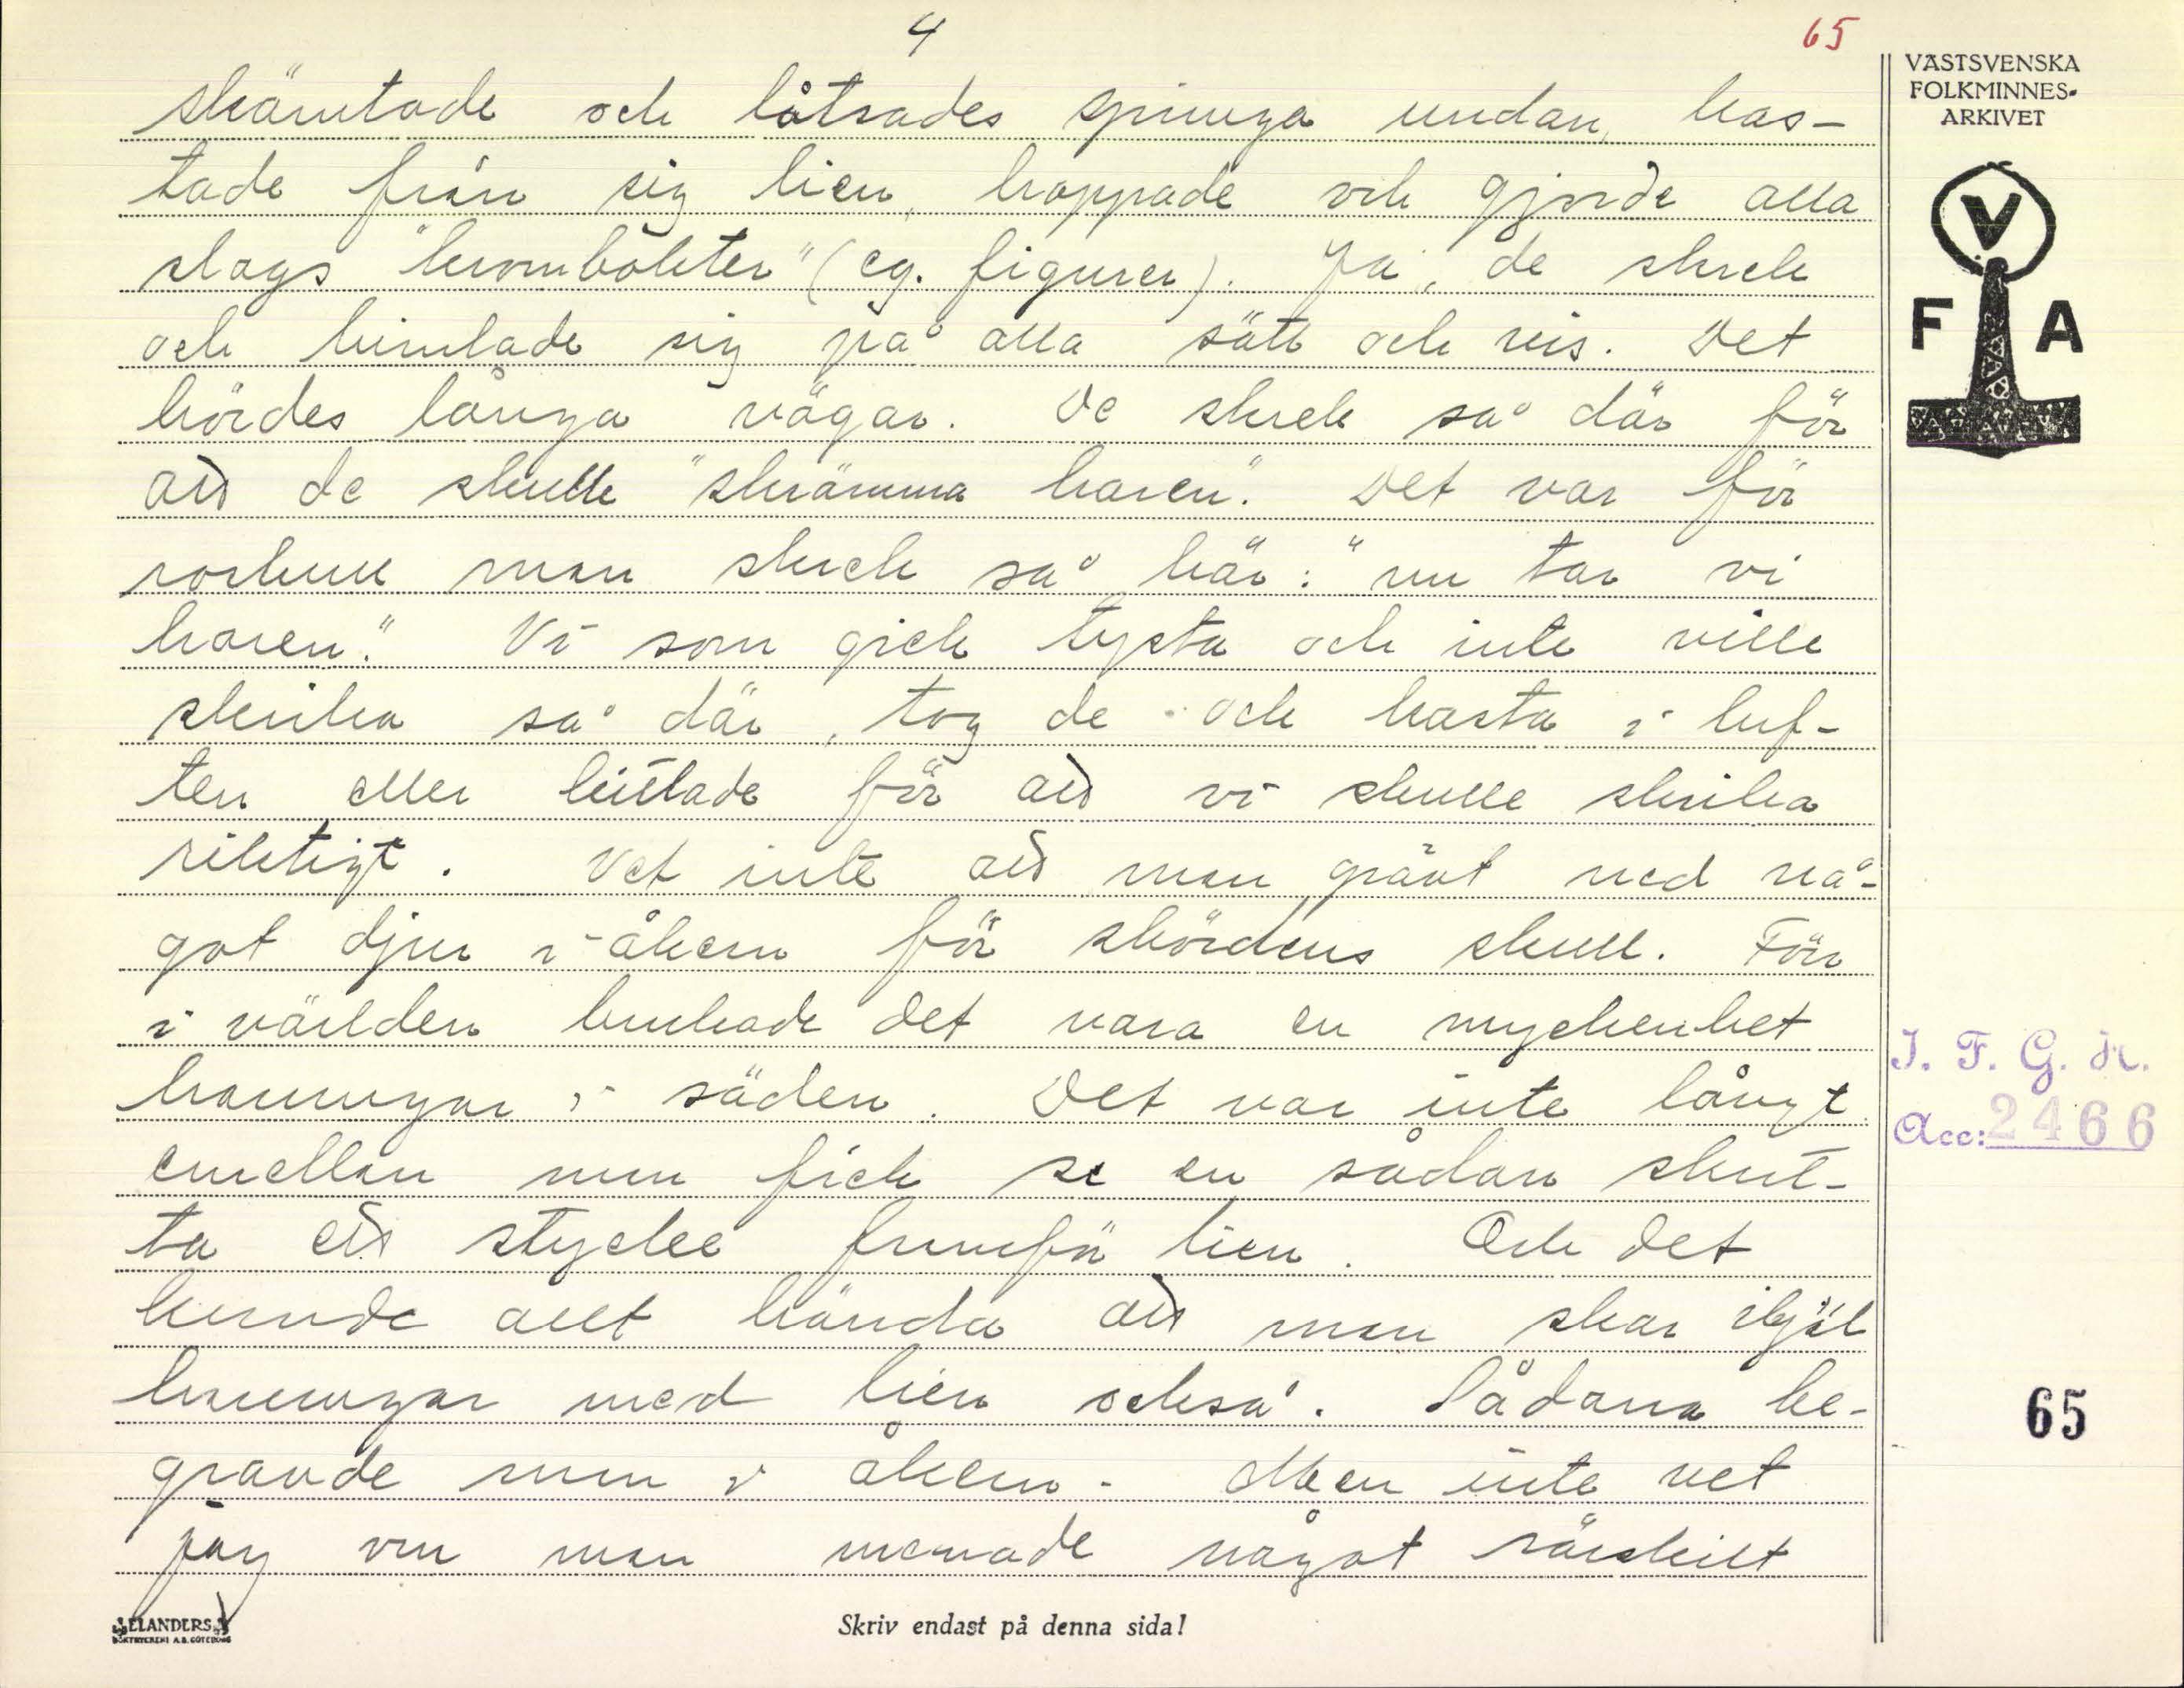 4
65
skämtade och låtsades springa undan, kas-
tade från sig lien, hoppade och gjorde alla
slags "krombökter" (eg. figurer). Ja, de skrek
och himlade sig på alla sätt och vis. Det
hördes långa vägar. De skrek så där för
att de skulle "skrämma haren". Det var för
roskull man skrek så här: "nu tar vi
haren." Vi som gick tysta och inte ville
skrika så där, tog de och kasta i luf-
ten eller kittlade för att vi skulle skrika
riktigt. Vet inte att man grävt ned nå-
got djur i åkern för skördens skull. Förr
i världen brukade det vara en myckenhet
harungar i säden. Det var inte långt
emellan man fick se en sådan skut-
ta ett stycke framför lien. Och det
kunde allt hända att man skar ihjäl
harungar med lien också. Sådana be-
gravde man i åkern. Men inte vet
jag om man menade något särskilt
VÄSTSVENSKA
FOLKMINNES-
ARKIVET
V
F A
I. F. G. H.
Acc: 2466
65
ELANDERS
BOKTRYCKERI A.B. GÖTEBORG
Skriv endast på denna sida!